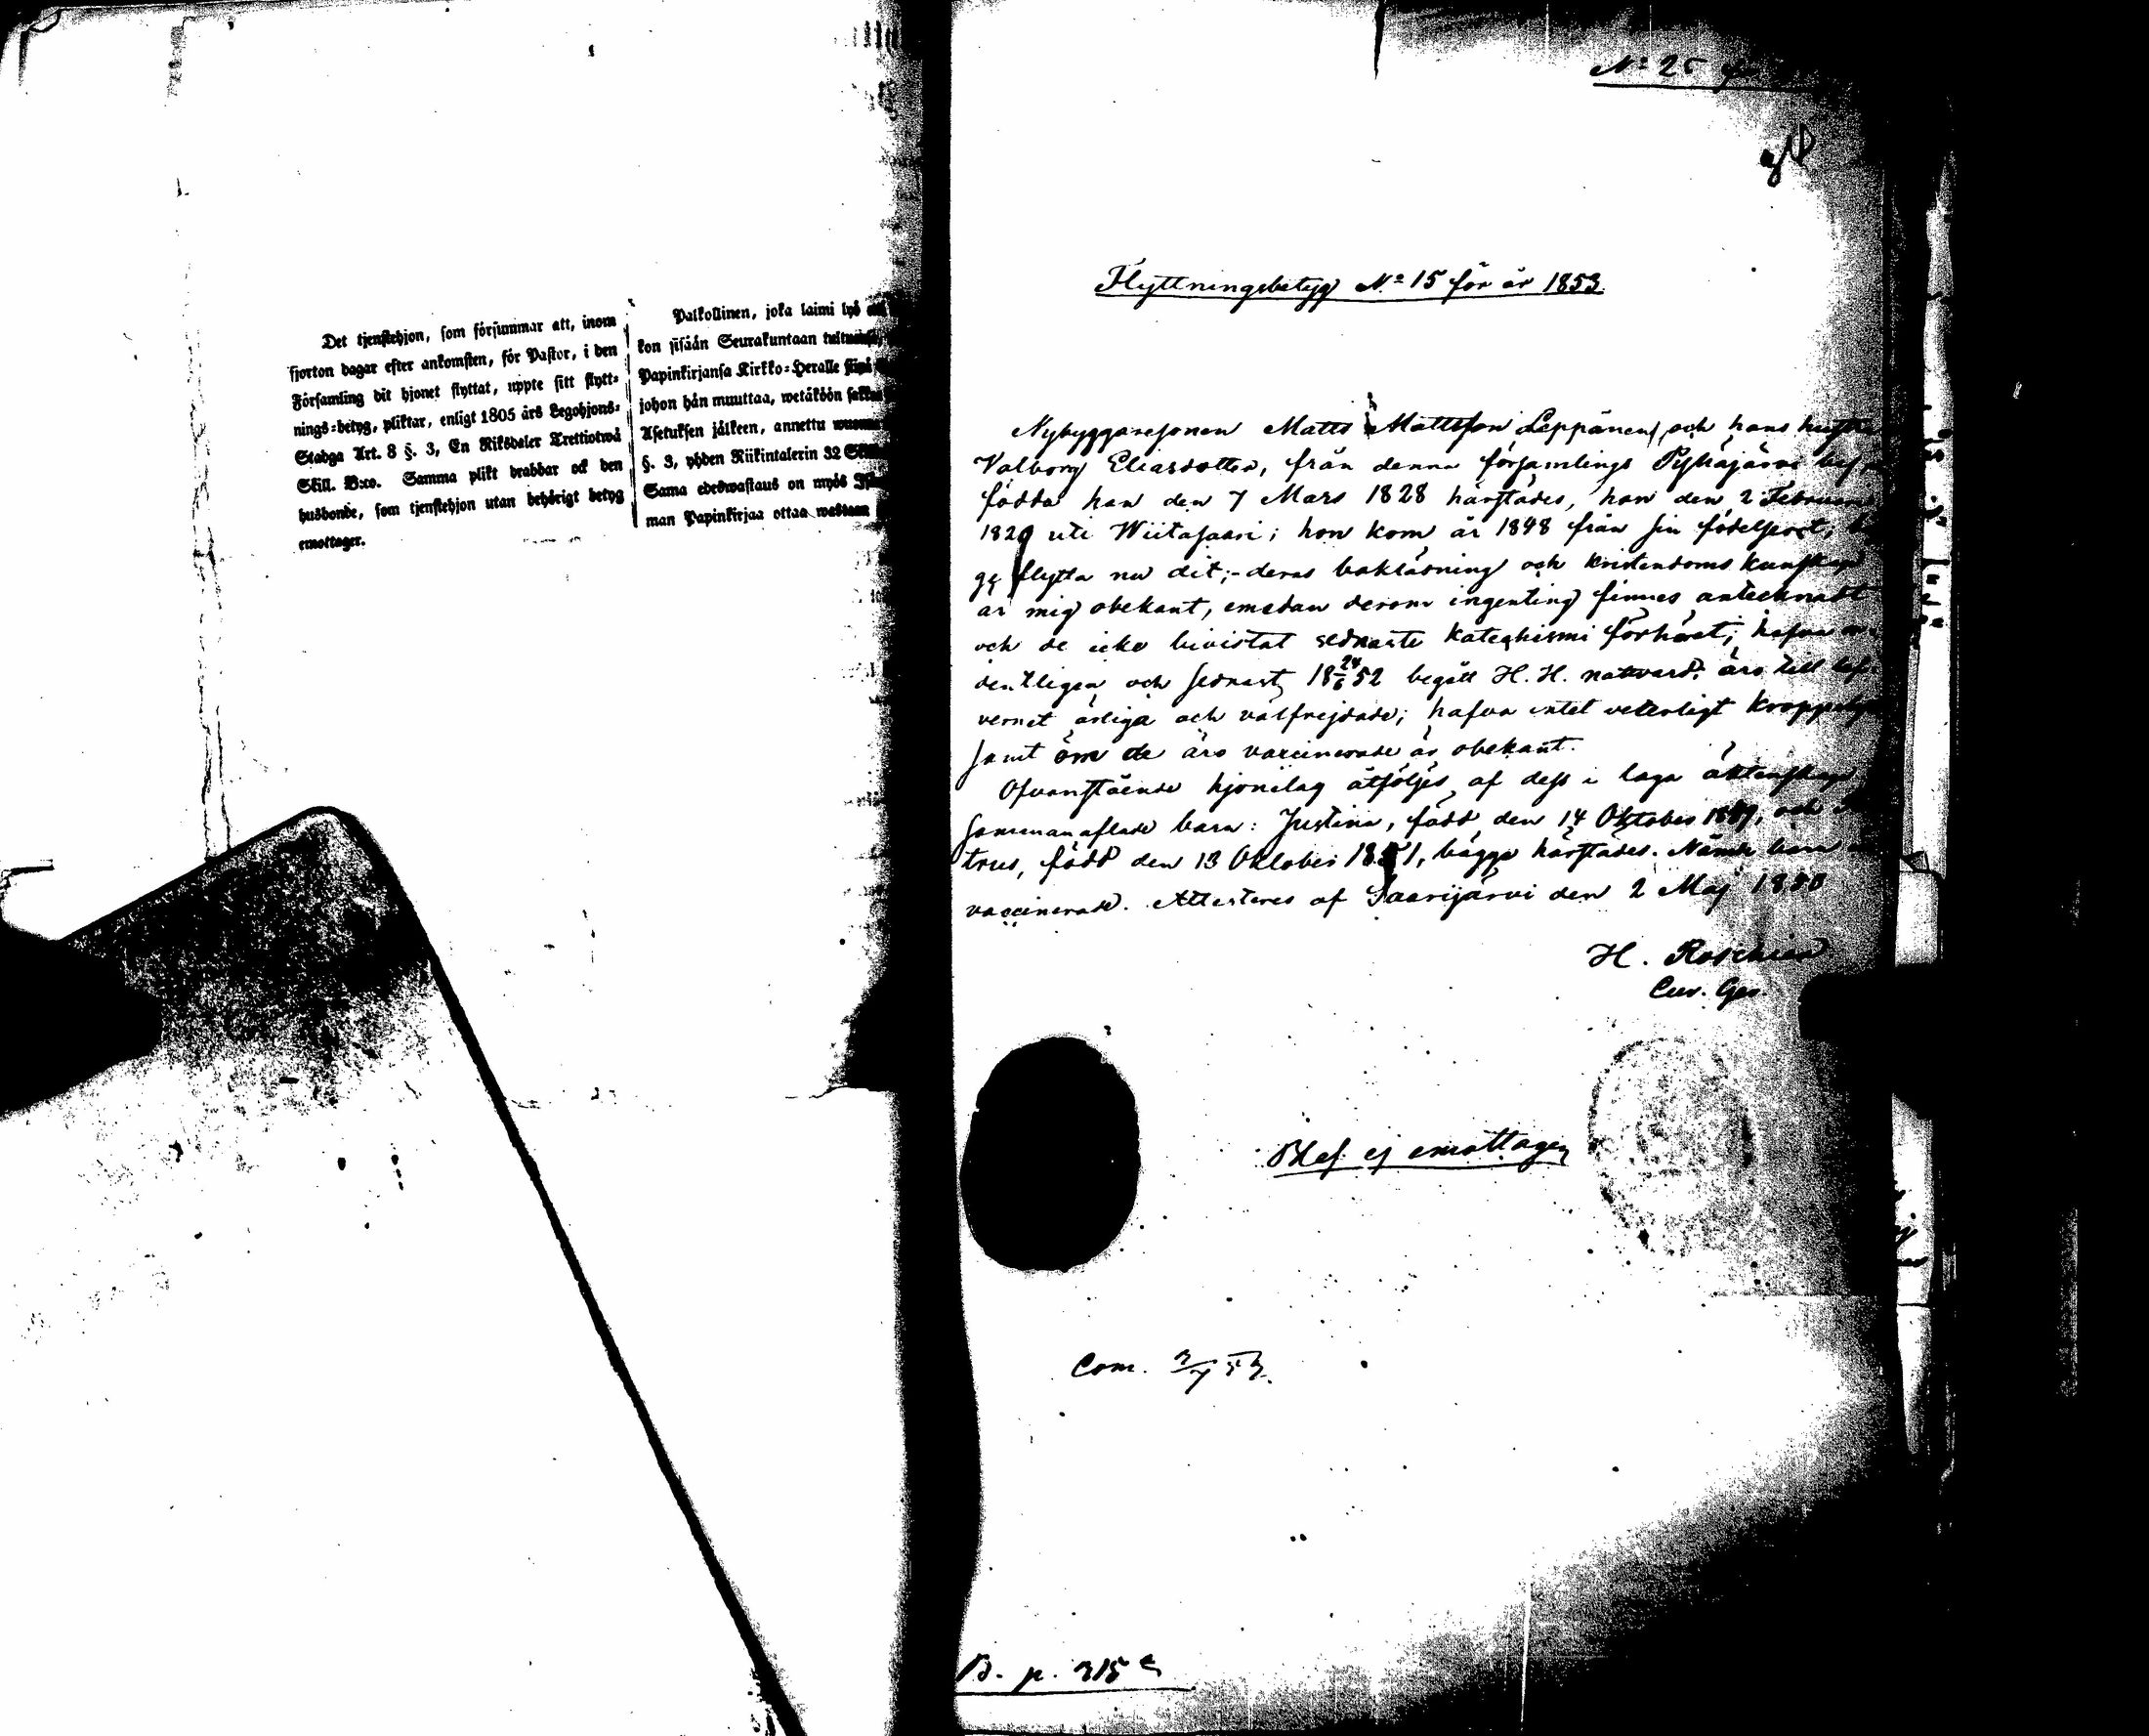 Det tjenstehjon, som försummar att, inom
fjorton dagar efter ankomsten, för Pastor, i den
Församling dit hjonet flyttat, uppte sitt flytt-
nings-betyg, pliktar, enligt 1805 års Legohjons-
Stadga Art. 8 §. 3, En Riksdaler Trettiotwå
Skill. B:co. Samma plikt drabbar ock den
husbonde, som tjenstehjon utan behörigt betyg
emottager.
Palkollinen, joka laimi lyö
kon sisään Seurakuntaan
Papinkirjansa Kirkko-Heralle
johon hän muuttaa, wetäköön
Asetuksen jälkeen, annettu
§. 3, yhden Riikintalerin 32
Sama edeswastaus on myös
man Papinkirjaa ottaa wastaan
No 25
Flyttningsbetyg No 15 för år 1853.
Nybyggaresonen Matts Mattsson Leppänen, och hans hustru
Valborg Eliasdotter, från denna församlings Pyhäjärvi
födda han den 7 Mars 1828 härstädes, hon den 2 Februari
1829 uti Wiitasaari; hon kom år 1848 från sin födelseort,
flytta nu dit;- deras bokläsning och kristendoms kunskap
är mig obekant, emedan derom ingenting finnes antecknadt
och de icke bivistat sednaste kateghismi förhöret; hafva
dentligen och sednast 18 24/6 52 begått H. H. nattvard: äro till
vernet ärliga och välfrejdade; hafva intet veterligt
samt om de äro vaccinerade är obekant.
Ofvanstående hjonelag åtföljes af dess i laga äktenskap
sammanaflade barn: Justina, född den 14 Oktober 1849, och
trus, född den 13 Oktober 1851, bägge härstädes. Nämde barn
vaccinerade. Attesteres af Saarijärvi den 2 Maj 1853
H. Roschier
Cur. Ger.
Blef ej emottagen
Com. 3/7 53.
B. p. 315